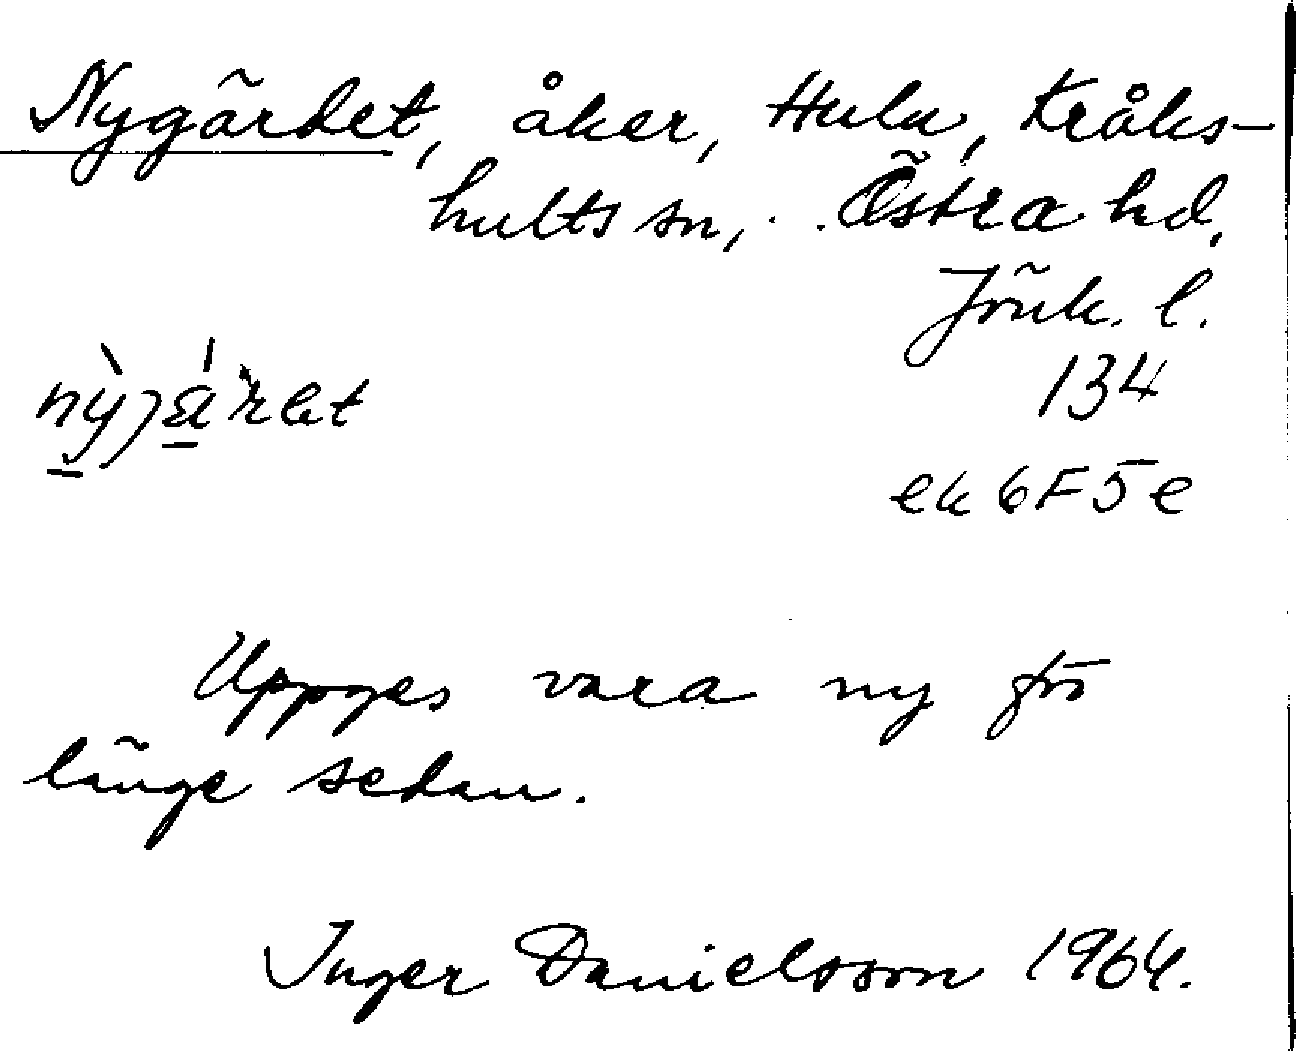 Nygärdet, åker, Hulu, Kråks-
hults sn, Östra hd,
Jönk. l.
134
ek 6F5e
Uppges vara ny för
länge sedan.
Inger Danielsson 1964.